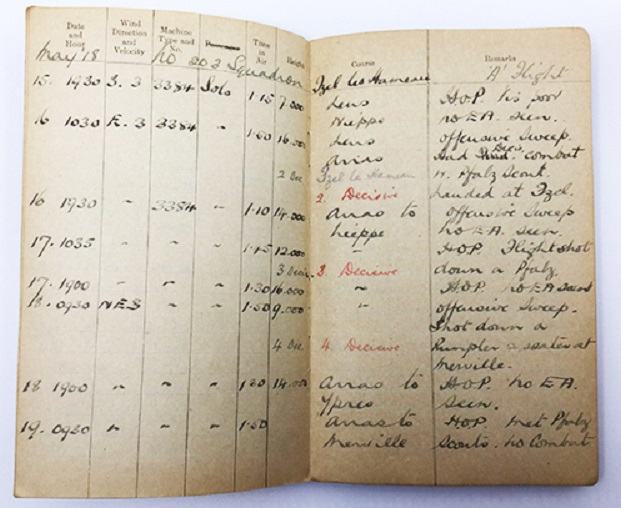 Date and Hour
Wind Direction and Velocity
Machine Type and No.
Passenger
Time in Air
Height
Course
Remarks
May 18 No 203 Squadron
Izel le Hameau "A" Flight
15. 1930 S. 3 3384 Solo 1·15 7.000 Lens H.O.P. Vis poor
Nieppe no E.A. seen.
16 1030 E. 3 3384 " 1·50 16.000 Lens offensive Sweep.
Arras Had Decs. combat
2 Dec Izel le Hameau w. Pfalz Scout.
2. Decisive Landed at Izel.
16 1930 " 3384 " 1·10 14.000 Arras to offensive Sweep
Nieppe no E.A. seen.
17. 1035 " " " 1·45 12.000 " H.O.P. Flight shot
3 Decis. 3. Decisive down a Pfalz.
17. 1900 " " " 1·30 16.000 " H.O.P. no E.A. seen
18. 0930 NE3 " " 1·50 9.000 " offensive Sweep.
Shot down a
4 Dec 4. Decisive Rumpler 2 seater at
Merville.
18 1900 " " " 14.000 Arras to H.O.P. no E.A.
Ypres seen.
19. 0930 " " " 1·50 Arras to HOP met Pfalz
Merville Scouts. no Combat